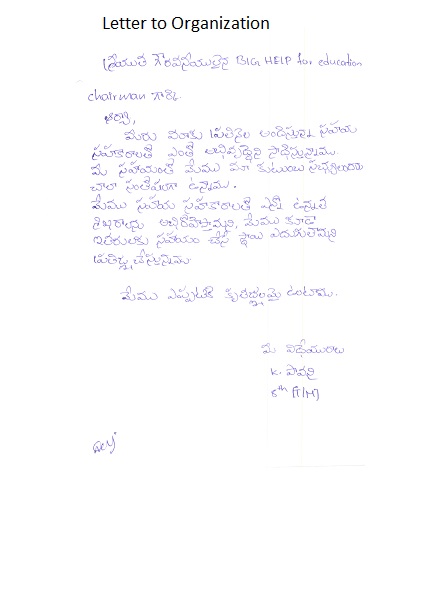 Letter to Organization
శ్రీయుత గౌరవనీయులైన BIG HELP for education
chairman గారికి
ఆర్యా,
మీరు మాకు ప్రతినెల అందిస్తున్న సహాయ
సహకారాలతో ఎంతో అభివృద్ధిని సాధిస్తున్నాము.
మీ సహాయంతో మేము మా కుటుంబ సభ్యులందరూ
చాలా సంతోషంగా ఉన్నాము.
మేము సహాయ సహకారాలతో ఎన్నో ఉన్నత
శిఖరాలను అధిరోహిస్తామని, మేము కూడా
ఇతరులకు సహాయం చేసే స్థాయి ఎదుగుతామని
ప్రతిజ్ఞ చేస్తున్నాము
మేము ఎప్పటికి కృతజ్ఞులమై ఉంటాము.
మీ విధేయురాలు
K. పావని
8th (T/M)